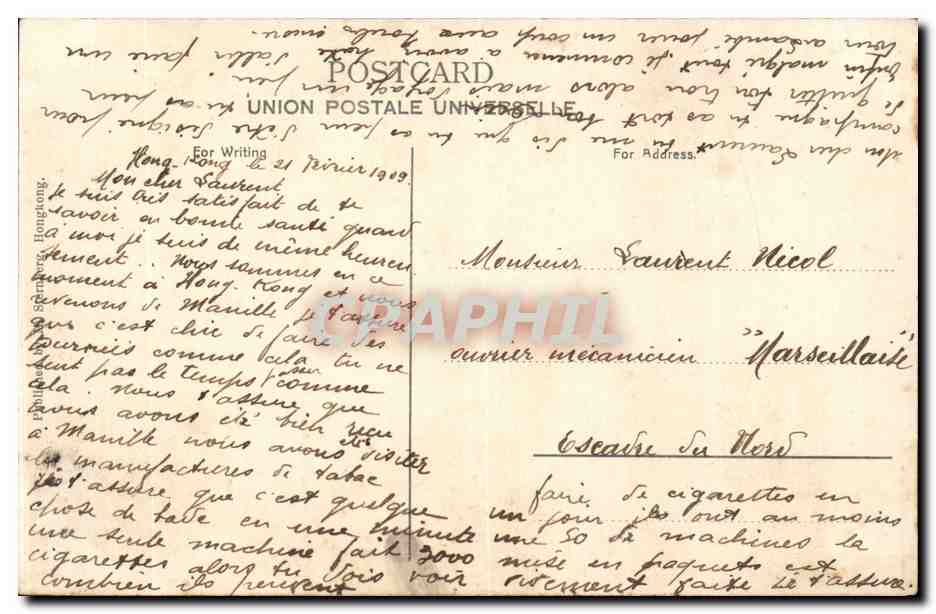 POSTCARD
UNION POSTALE UNIVERSELLE
For Writing
For Address.
Hong-Kong le 21 Février 1909.
Mon cher Laurent
Je suis très satisfait de te
savoir en bonne santé quand
à moi je suis de même heureu
sement. Nous sommes en ce
moment à Hong-Kong et nous
revenons de Manille je t'assure
que c'est chic de faire des
tournées comme cela tu ne
sent pas le temps passer comme
cela. Nous t'assure que
nous avons été bien reçu
à Manille nous avons été visiter
les manufactures de tabac
je t'assure que c'est quelque
chose de en une minute
une seule machine fait 3000
cigarettes alors tu dois voir
combien ils peuvent
faire de cigarettes en
un jour ils ont au moins
une 50 de machines la
mise en paquets est
vivement faite je t'assure.
Mon cher Laurent tu me dis que tu as peur d'être désigné pour
campagne tu as tort tu as peur
de quitter ton alors mais voyage un peu
Enfin malgré tout je commence a avoir hâte d'aller faire un
tour ensemble jouer un coup aux boules encore.
Monsieur Laurent Nicol
ouvrier mécanicien "Marseillaise
Escadre du Nord
Published by M. Sternberg, Hongkong.
CPAPHIL